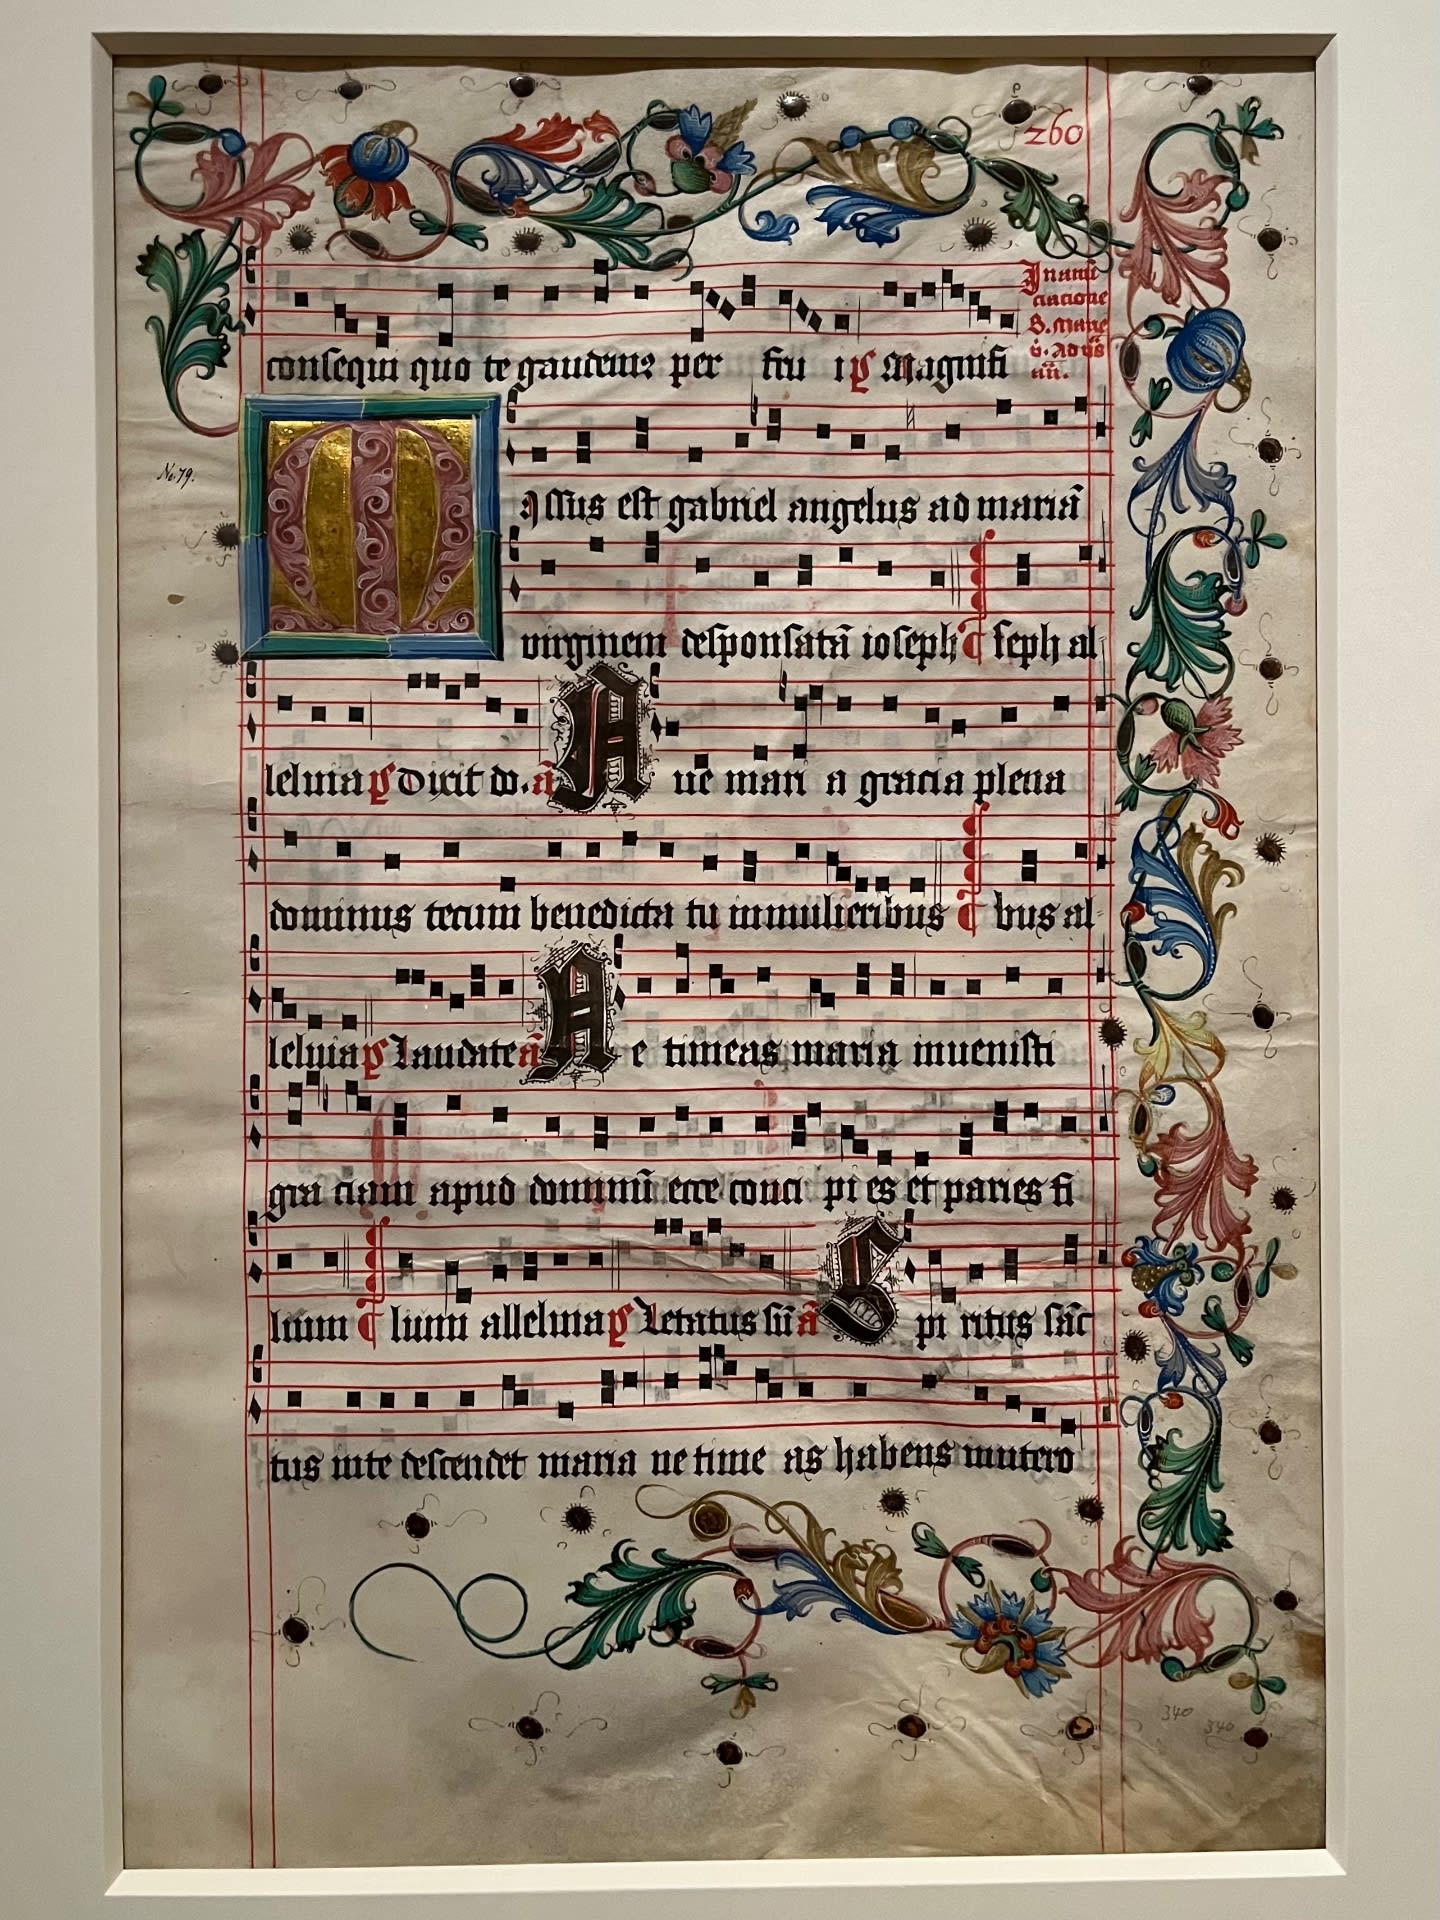 260
In anūū
ciacione
S. Marie
v. ad vīs
añ.
consequi quo te gaudemus per fru i ps Magnifi
No. 79.
M issus est gabriel angelus ad mariā
virginem desponsatā ioseph seph al
leluia ps Dixit do. ā A ue mari a gracia plena
dominus tecum benedicta tu in mulieribus bus al
leluia ps Laudate ā N e timeas maria inuenisti
gra ciam apud dominū ecce conci pi es et paries fi
lium lium alleluia ps Letatus sū ā S pi ritus sāc
tus in te descendet maria ne time as habens in utero
340
340